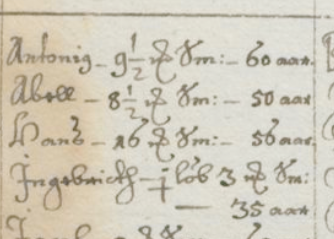 Antonig – 9½ ℔ Sm: – 60 aar.
Abell – 8½ ℔ Sm: – 50 aar
Hans – 16 ℔ Sm: – 56 aar.
Ingebricth – 1 lób 3 ℔ Sm:
— 35 aar